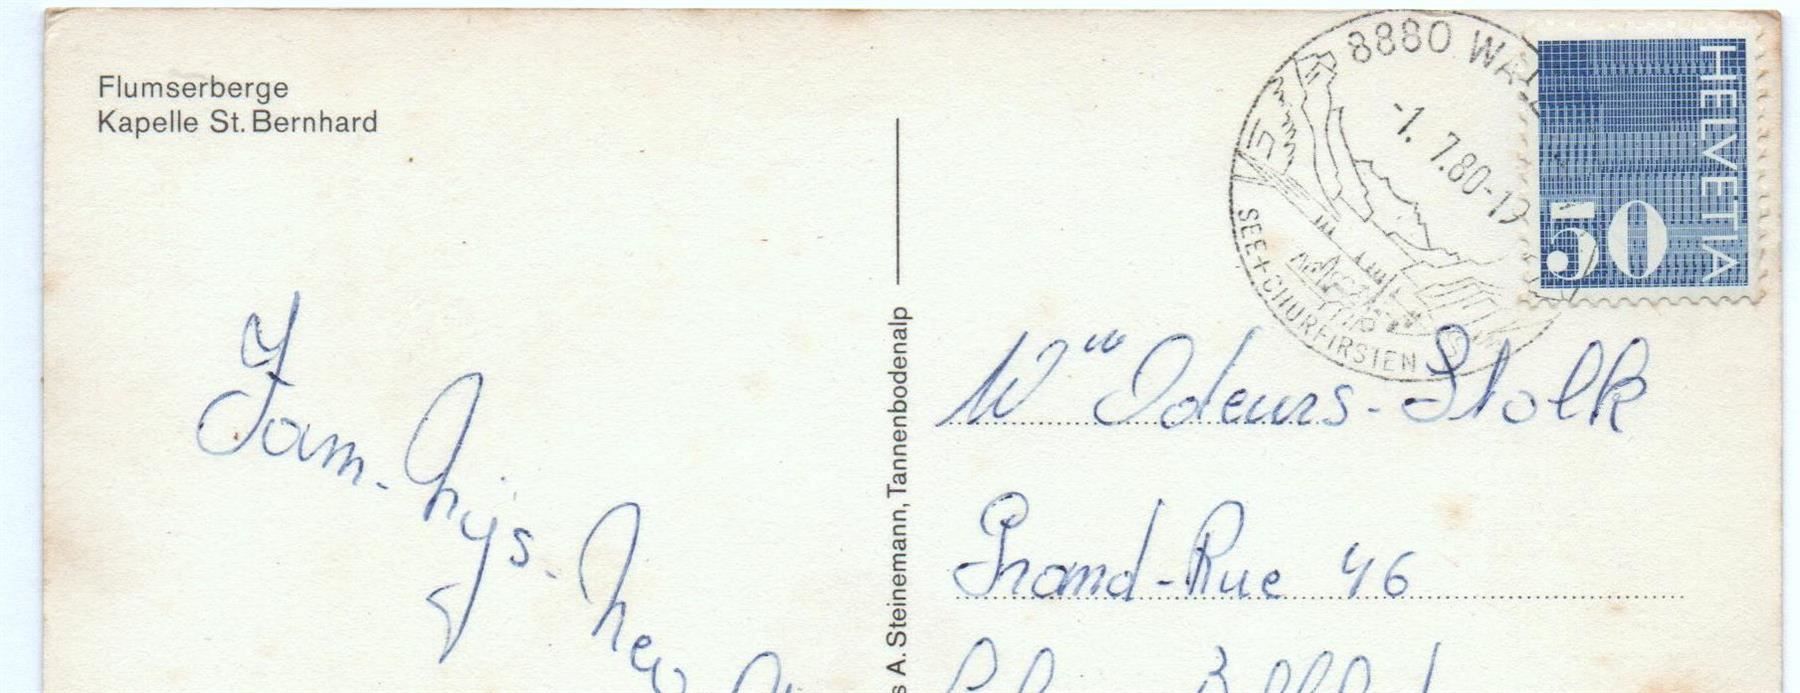 Flumserberge
Kapelle St. Bernhard
8880 WAL
-1. 7.80-12
SEE+CHURFIRSTEN
HELVETIA
50
s A. Steinemann, Tannenbodenalp
Fam. Nys.
Odeurs-Stolk
Grand-Rue 46